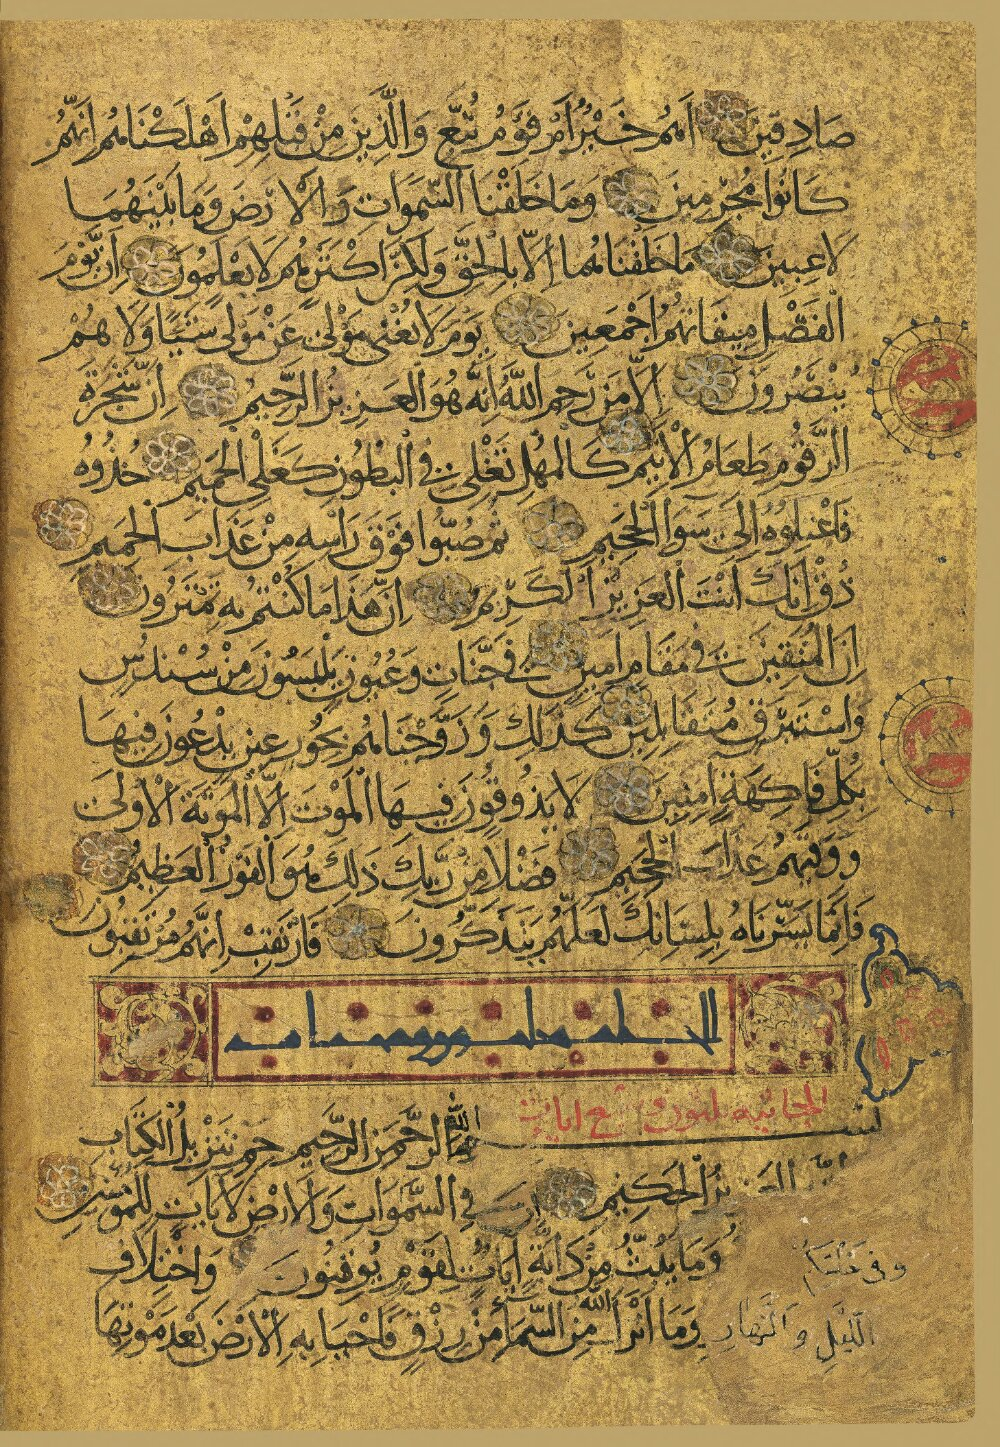 صَادِقِينَ أَهُمْ خَيْرٌ أَمْ قَوْمُ تُبَّعٍ وَالَّذِينَ مِنْ قَبْلِهِمْ أَهْلَكْنَاهُمْ إِنَّهُمْ
كَانُوا مُجْرِمِينَ وَمَا خَلَقْنَا السَّمَوَاتِ وَالْأَرْضَ وَمَا بَيْنَهُمَا
لَاعِبِينَ مَا خَلَقْنَاهُمَا إِلَّا بِالْحَقِّ وَلَكِنَّ أَكْثَرَهُمْ لَا يَعْلَمُونَ إِنَّ يَوْمَ
الْفَصْلِ مِيقَاتُهُمْ أَجْمَعِينَ يَوْمَ لَا يُغْنِي مَوْلًى عَنْ مَوْلًى شَيْئًا وَلَا هُمْ
يُنْصَرُونَ إِلَّا مَنْ رَحِمَ اللَّهُ إِنَّهُ هُوَ الْعَزِيزُ الرَّحِيمُ إِنَّ شَجَرَةَ
الزَّقُّومِ طَعَامُ الْأَثِيمِ كَالْمُهْلِ تَغْلِي فِي الْبُطُونِ كَغَلْيِ الْحَمِيمِ خُذُوهُ
فَاعْتِلُوهُ إِلَى سَوَاءِ الْجَحِيمِ ثُمَّ صُبُّوا فَوْقَ رَأْسِهِ مِنْ عَذَابِ الْحَمِيمِ
ذُقْ إِنَّكَ أَنْتَ الْعَزِيزُ الْكَرِيمُ إِنَّ هَذَا مَا كُنْتُمْ بِهِ تَمْتَرُونَ
إِنَّ الْمُتَّقِينَ فِي مَقَامٍ أَمِينٍ فِي جَنَّاتٍ وَعُيُونٍ يَلْبَسُونَ مِنْ سُنْدُسٍ
وَإِسْتَبْرَقٍ مُتَقَابِلِينَ كَذَلِكَ وَزَوَّجْنَاهُمْ بِحُورٍ عِينٍ يَدْعُونَ فِيهَا
بِكُلِّ فَاكِهَةٍ آمِنِينَ لَا يَذُوقُونَ فِيهَا الْمَوْتَ إِلَّا الْمَوْتَةَ الْأُولَى
وَوَقَيهُمْ عَذَابَ الْجَحِيمِ فَضْلًا مِنْ رَبِّكَ ذَلِكَ هُوَ الْفَوْزُ الْعَظِيمُ
فَإِنَّمَا يَسَّرْنَاهُ بِلِسَانِكَ لَعَلَّهُمْ يَتَذَكَّرُونَ فَارْتَقِبْ إِنَّهُمْ مُرْتَقِبُونَ
الجاثية ثلثون و ع ايات
بسم الله الرَّحْمَنِ الرَّحِيمِ حم تَنْزِيلُ الْكِتَابِ
مِنَ اللَّهِ الْعَزِيزِ الْحَكِيمِ إِنَّ فِي السَّمَوَاتِ وَالْأَرْضِ لَآيَاتٍ لِلْمُؤْمِنِينَ
وَفِي خَلْقِكُمْ وَمَا يَبُثُّ مِنْ دَابَّةٍ آيَاتٌ لِقَوْمٍ يُوقِنُونَ وَاخْتِلَافِ
اللَّيْلِ وَالنَّهَارِ وَمَا أَنْزَلَ اللَّهُ مِنَ السَّمَاءِ مِنْ رِزْقٍ فَأَحْيَا بِهِ الْأَرْضَ بَعْدَ مَوْتِهَا